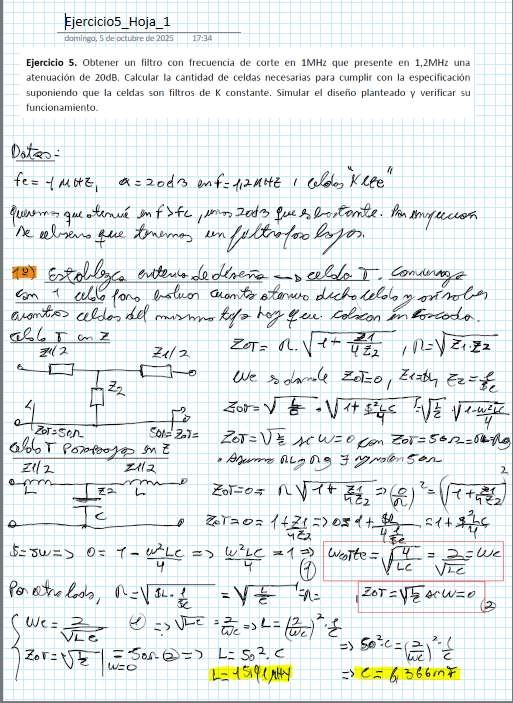 Ejercicio5_Hoja_1
domingo, 5 de octubre de 2025 17:34
Ejercicio 5. Obtener un filtro con frecuencia de corte en 1MHz que presente en 1,2MHz una
atenuación de 20dB. Calcular la cantidad de celdas necesarias para cumplir con la especificación
suponiendo que la celdas son filtros de K constante. Simular el diseño planteado y verificar su
funcionamiento.
Datos:
fc = 1 MHz, a = 20dB en f = 1,2MHz, celdas "K cte"
queremos que atenúe en f>fc, unos 20dB que es bastante. Por inspección
se observa que tenemos un filtro paso bajos.
1º) Establezco criterio de diseño → celda T. Comienzo
con 1 celda para evaluar cuanto atenua dicha celda y así saber
cuantas celdas del mismo tipo hay que colocar en cascada.
Celda T en Z
Z1/2 Z1/2
Z2
Z0T=50Ω
Z0T = R·√(1 + Z1/4Z2), R=√(Z1·Z2)
Wc es donde Z0T=0, Z1=SL, Z2=1/SC
Z0T=√(L/C) · √(1+S²LC/4) = √(L/C) √(1-W²LC/4)
Z0T=√(L/C) si W=0 con Z0T=50Ω
Celda T Paso bajos en Z
Z1/2 Z1/2
L Z2 L
C
Z0T=0= R √(1+Z1/4Z2) ⇒ (0/R)² = (√(1+Z1/4Z2))²
Z0T=0= 1+Z1/4Z2 ⇒ 0=1+SL/(4·1/SC) = 1+S²LC/4
S=JW ⇒ 0= 1 - W²LC/4 ⇒ W²LC/4 = 1 ⇒ (1) Wcorte = √(4/LC) = 2/√LC = Wc
Por otro lado, R=√(SL·1/SC) = √(L/C) = R, Z0T=√(L/C) si W=0 (2)
Wc = 2/√LC (1) ⇒ √LC = 2/Wc ⇒ L = (2/Wc)²·1/C
Z0T=√(L/C) |W=0 = 50Ω (2) ⇒ L=50²·C
⇒ 50²·C=(2/Wc)²·1/C
L=15,91µHy
⇒ C=6,366nF